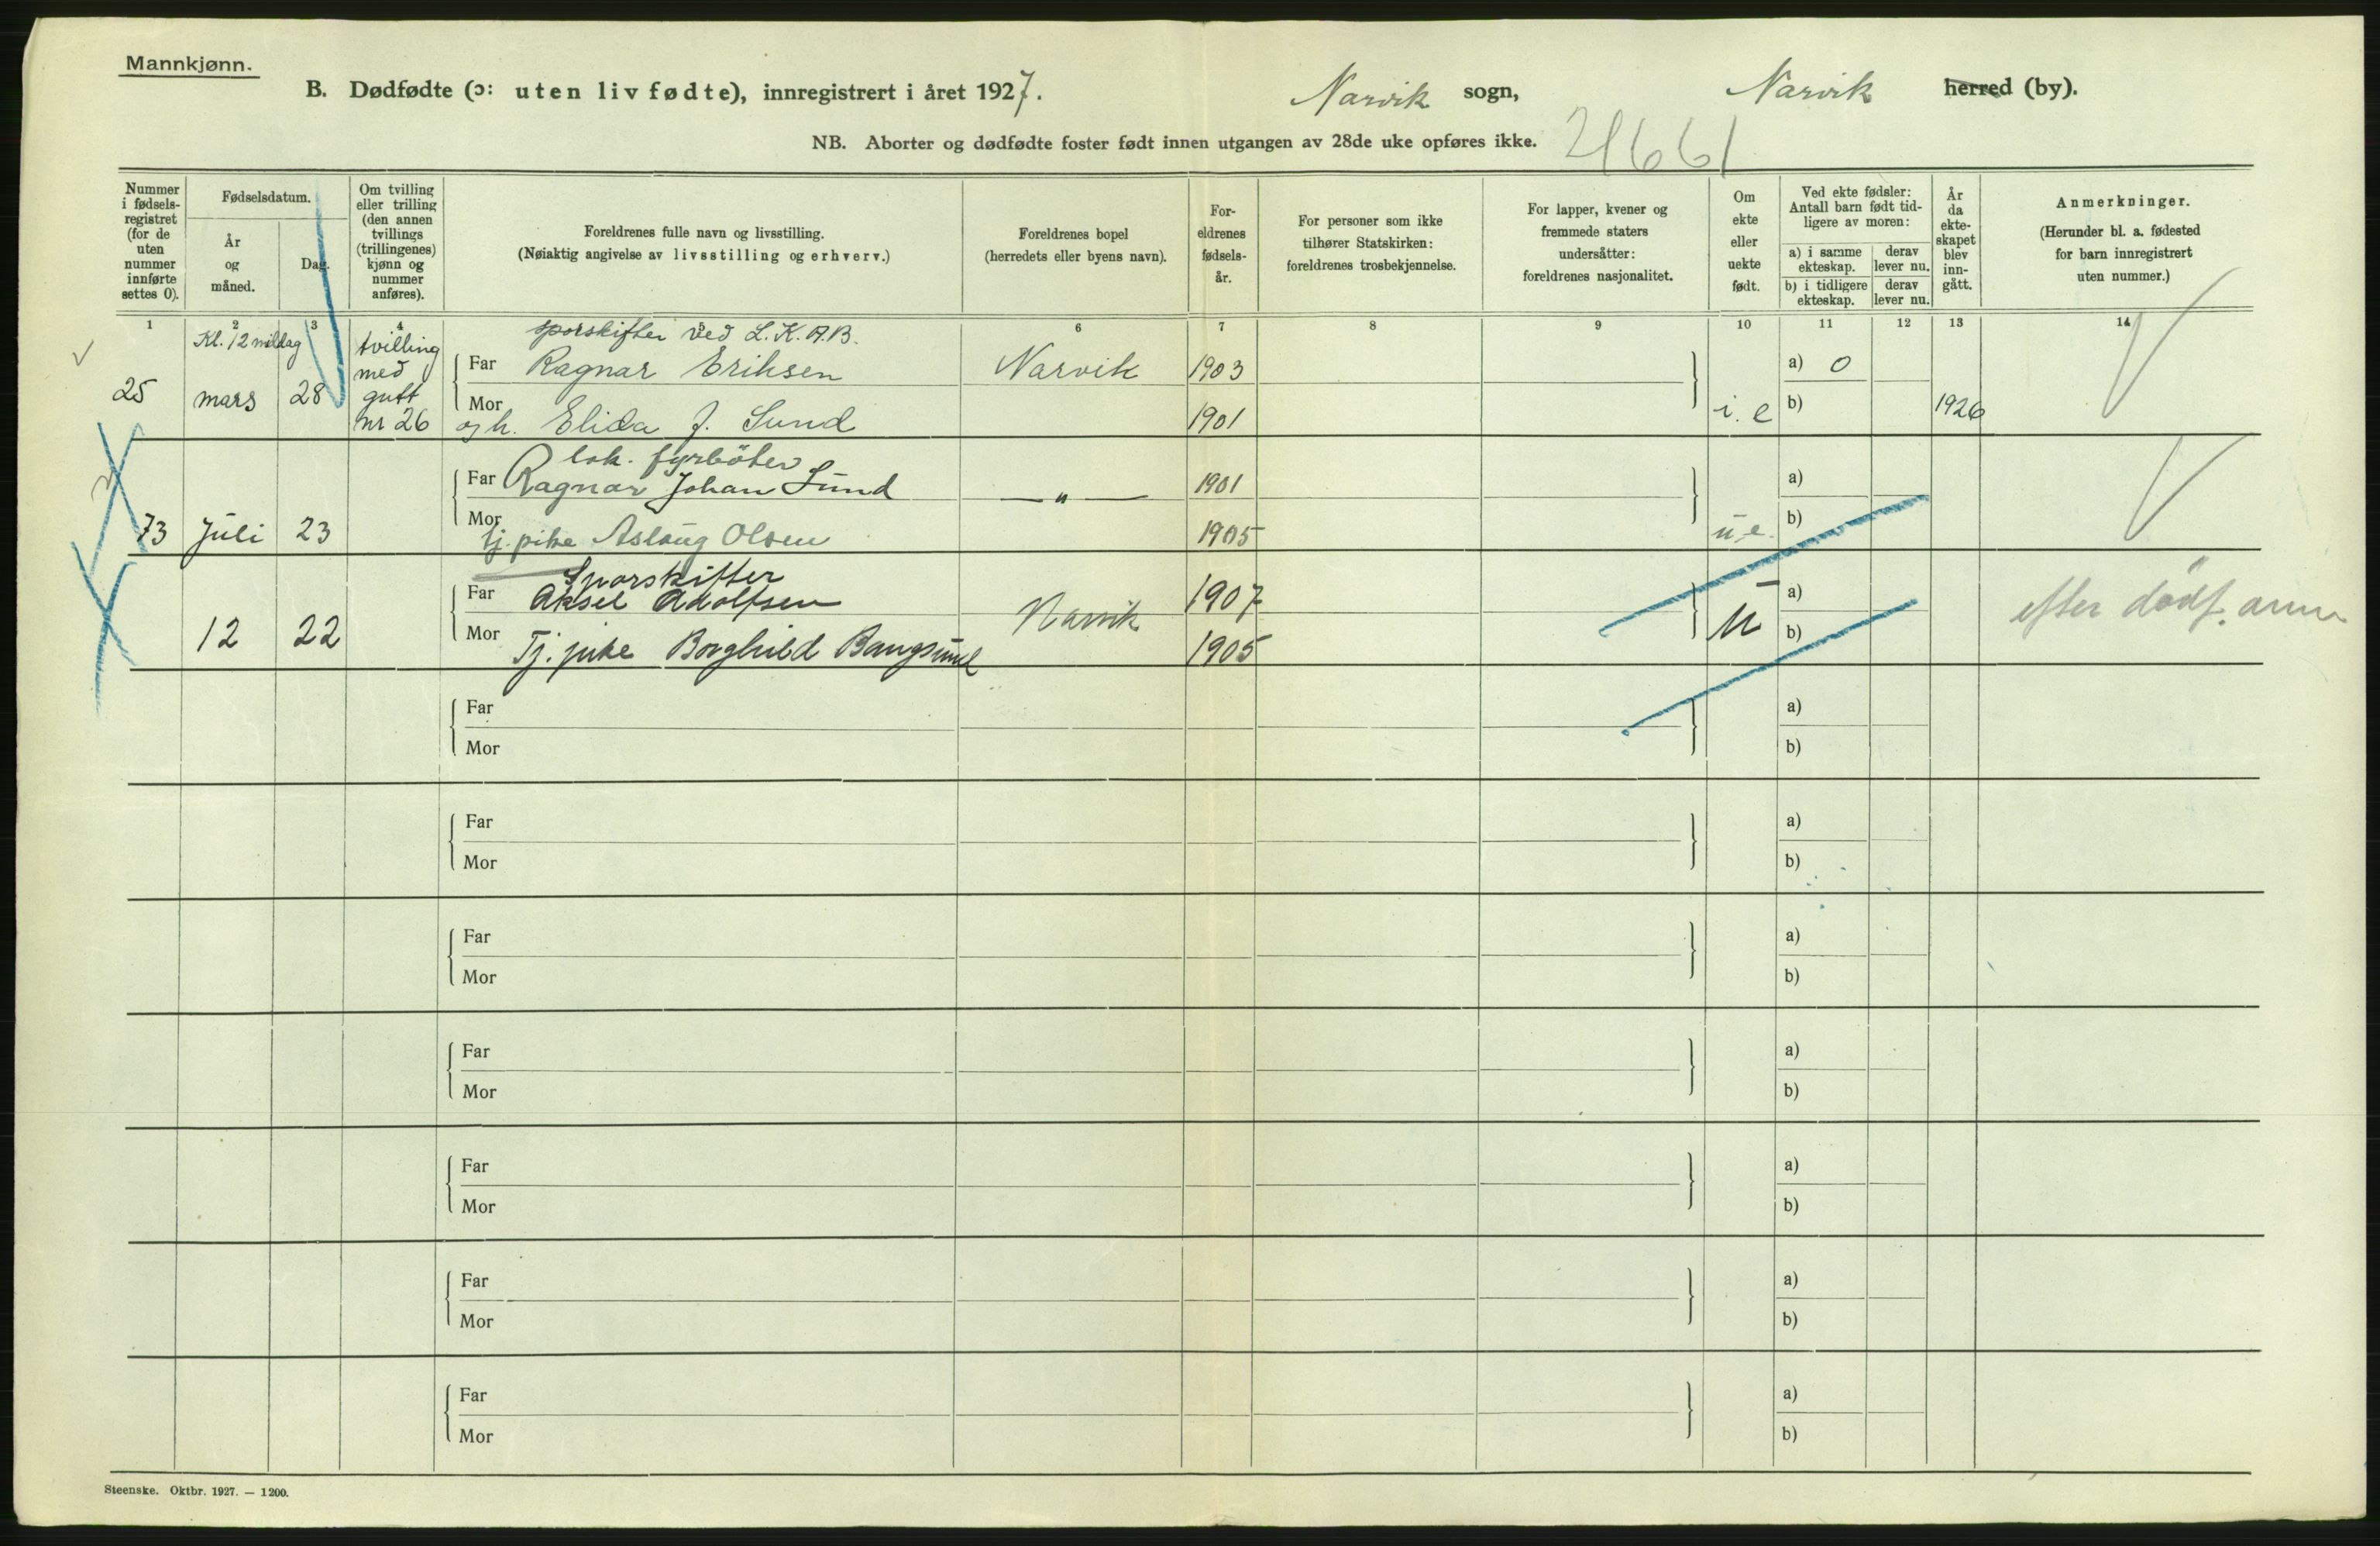 Mannkjønn.
B. Dødfødte (ɔ: uten liv fødte), innregistrert i året 1927. Narvik sogn, Narvik herred (by).
NB. Aborter og dødfødte foster født innen utgangen av 28de uke opføres ikke. 21661
Nummer i fødsels-registret (for de uten nummer innførte settes 0).
Fødselsdatum.
År og måned.
Dag.
Om tvilling eller trilling (den annen tvillings (trillingenes) kjønn og nummer anføres).
Foreldrenes fulle navn og livsstilling.
(Nøiaktig angivelse av livsstilling og erhverv.)
Foreldrenes bopel
(herredets eller byens navn).
For-eldrenes fødsels-år.
For personer som ikke tilhører Statskirken: foreldrenes trosbekjennelse.
For lapper, kvener og fremmede staters undersåtter: foreldrenes nasjonalitet.
Om ekte eller uekte født.
Ved ekte fødsler: Antall barn født tid-ligere av moren:
a) i samme ekteskap. derav lever nu.
b) i tidligere ekteskap. derav lever nu.
År da ekte-skapet blev inn-gått.
Anmerkninger.
(Herunder bl. a. fødested for barn innregistrert uten nummer.)
1 2 3 4 5 6 7 8 9 10 11 12 13 14
Kl. 12 middag tvilling sporskifter ved L.K.A.B.
med Far Ragnar Eriksen Narvik 1903 a) 0
25 mars 28 gutt Mor b)
nr 26 og h. Elida J. Sund 1901 i. e 1926
lok. fyrböter
Far Ragnar Johan Sund — " — 1901 a)
Mor b)
73 Juli 23 tj. pike Aslaug Olsen 1905 u. e.
Sporskifter
Far Aksel Adolfsen Narvik 1907 a)
12 22 Mor U b) efter dödf. anm
Tj. pike Borghild Bangsund 1905
Far a)
Mor b)
Far a)
Mor b)
Far a)
Mor b)
Far a)
Mor b)
Far a)
Mor b)
Far a)
Mor b)
Far a)
Mor b)
Steenske. Oktbr. 1927. — 1200.